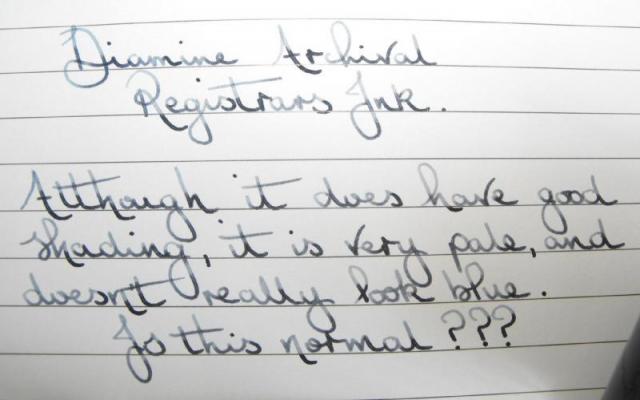 Diamine Archival
Registrars Ink.
Allthough it does have good
shading, it is very pale, and
doesn't really look blue.
Is this normal ???